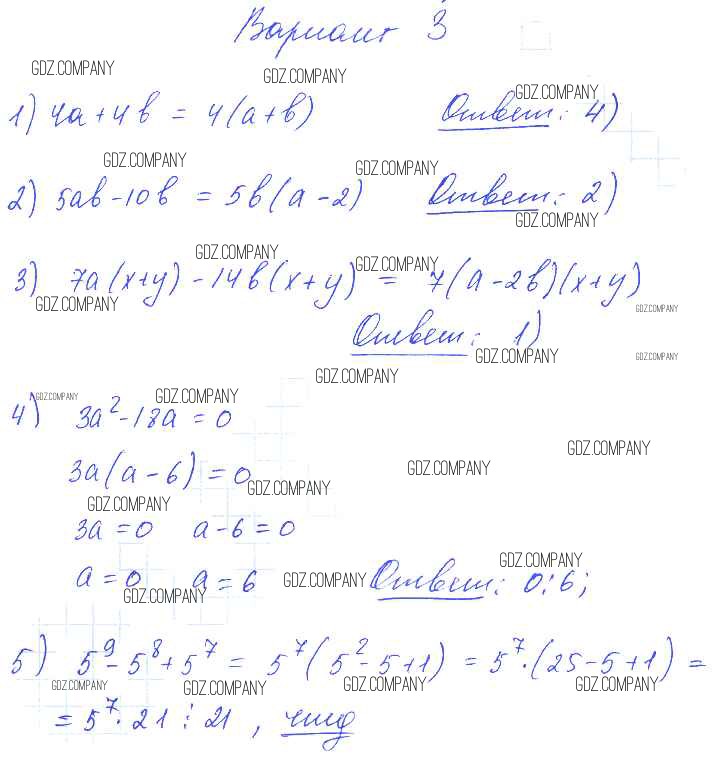 Вариант 3
GDZ.COMPANY GDZ.COMPANY GDZ.COMPANY
1) 4a + 4b = 4(a+b) Ответ: 4)
GDZ.COMPANY GDZ.COMPANY
2) 5ab - 10b = 5b(a-2) Ответ: 2)
GDZ.COMPANY
GDZ.COMPANY GDZ.COMPANY
3) 7a(x+y) - 14b(x+y) = 7(a-2b)(x+y)
GDZ.COMPANY GDZ.COMPANY
Ответ: 1)
GDZ.COMPANY GDZ.COMPANY
GDZ.COMPANY
GDZ.COMPANY GDZ.COMPANY
4) 3a² - 18a = 0
GDZ.COMPANY
3a(a-6) = 0
GDZ.COMPANY GDZ.COMPANY
GDZ.COMPANY
3a = 0 a - 6 = 0
GDZ.COMPANY
a = 0 a = 6 GDZ.COMPANY Ответ: 0; 6;
GDZ.COMPANY
5) 5⁹ - 5⁸ + 5⁷ = 5⁷(5² - 5 + 1) = 5⁷·(25 - 5 + 1) =
GDZ.COMPANY GDZ.COMPANY GDZ.COMPANY GDZ.COMPANY
= 5⁷·21 ⋮ 21, чтд